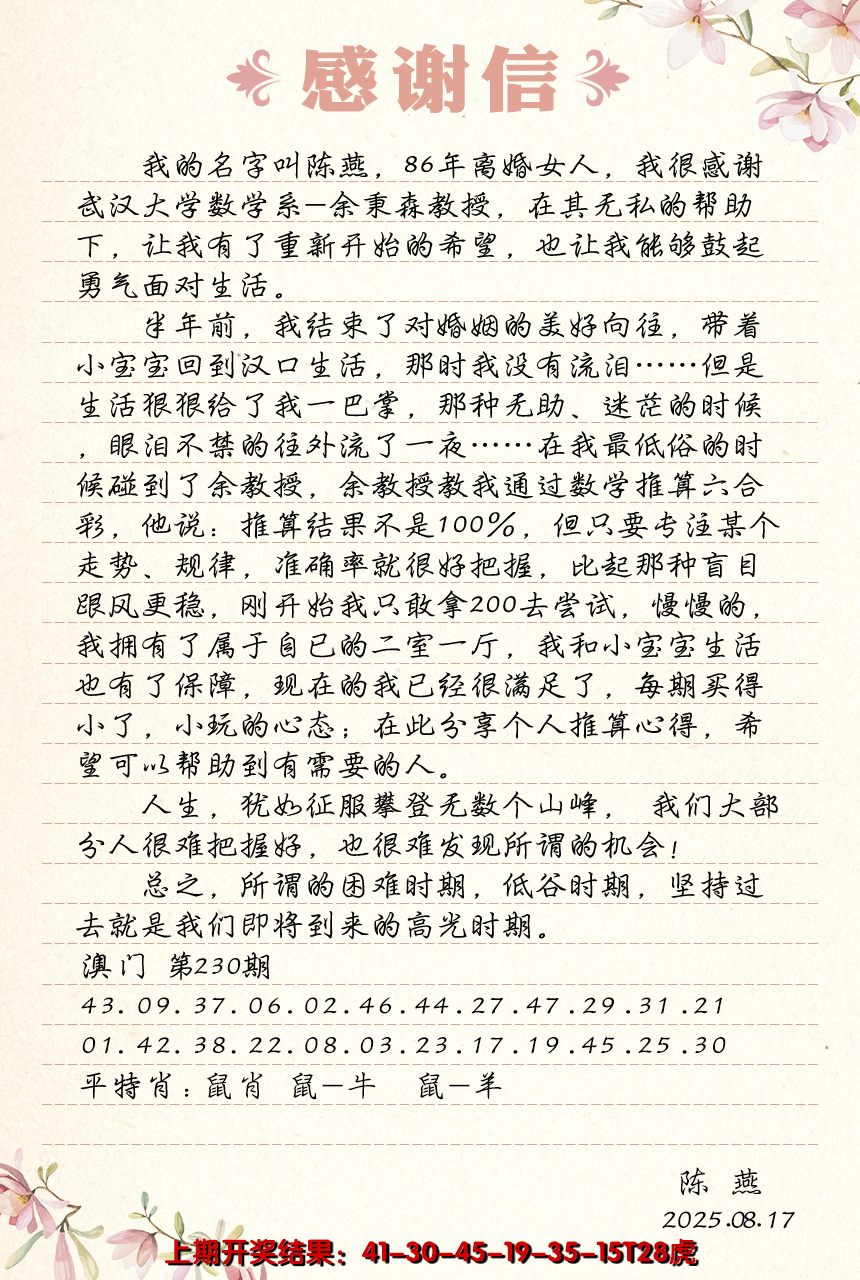 感谢信
我的名字叫陈燕，86年离婚女人，我很感谢
武汉大学数学系—余秉森教授，在其无私的帮助
下，让我有了重新开始的希望，也让我能够鼓起
勇气面对生活。
半年前，我结束了对婚姻的美好向往，带着
小宝宝回到汉口生活，那时我没有流泪……但是
生活狠狠给了我一巴掌，那种无助、迷茫的时候
，眼泪不禁的往外流了一夜……在我最低俗的时
候碰到了余教授，余教授教我通过数学推算六合
彩，他说：推算结果不是100%，但只要专注某个
走势、规律，准确率就很好把握，比起那种盲目
跟风更稳，刚开始我只敢拿200去尝试，慢慢的，
我拥有了属于自已的二室一厅，我和小宝宝生活
也有了保障，现在的我已经很满足了，每期买得
小了，小玩的心态；在此分享个人推算心得，希
望可以帮助到有需要的人。
人生，犹如征服攀登无数个山峰， 我们大部
分人很难把握好，也很难发现所谓的机会！
总之，所谓的困难时期，低谷时期，坚持过
去就是我们即将到来的高光时期。
澳门 第230期
43.09.37.06.02.46.44.27.47.29.31.21
01.42.38.22.08.03.23.17.19.45.25.30
平特肖：鼠肖 鼠—牛 鼠—羊
陈 燕
2025.08.17
上期开奖结果：41—30—45—19—35—15T28虎